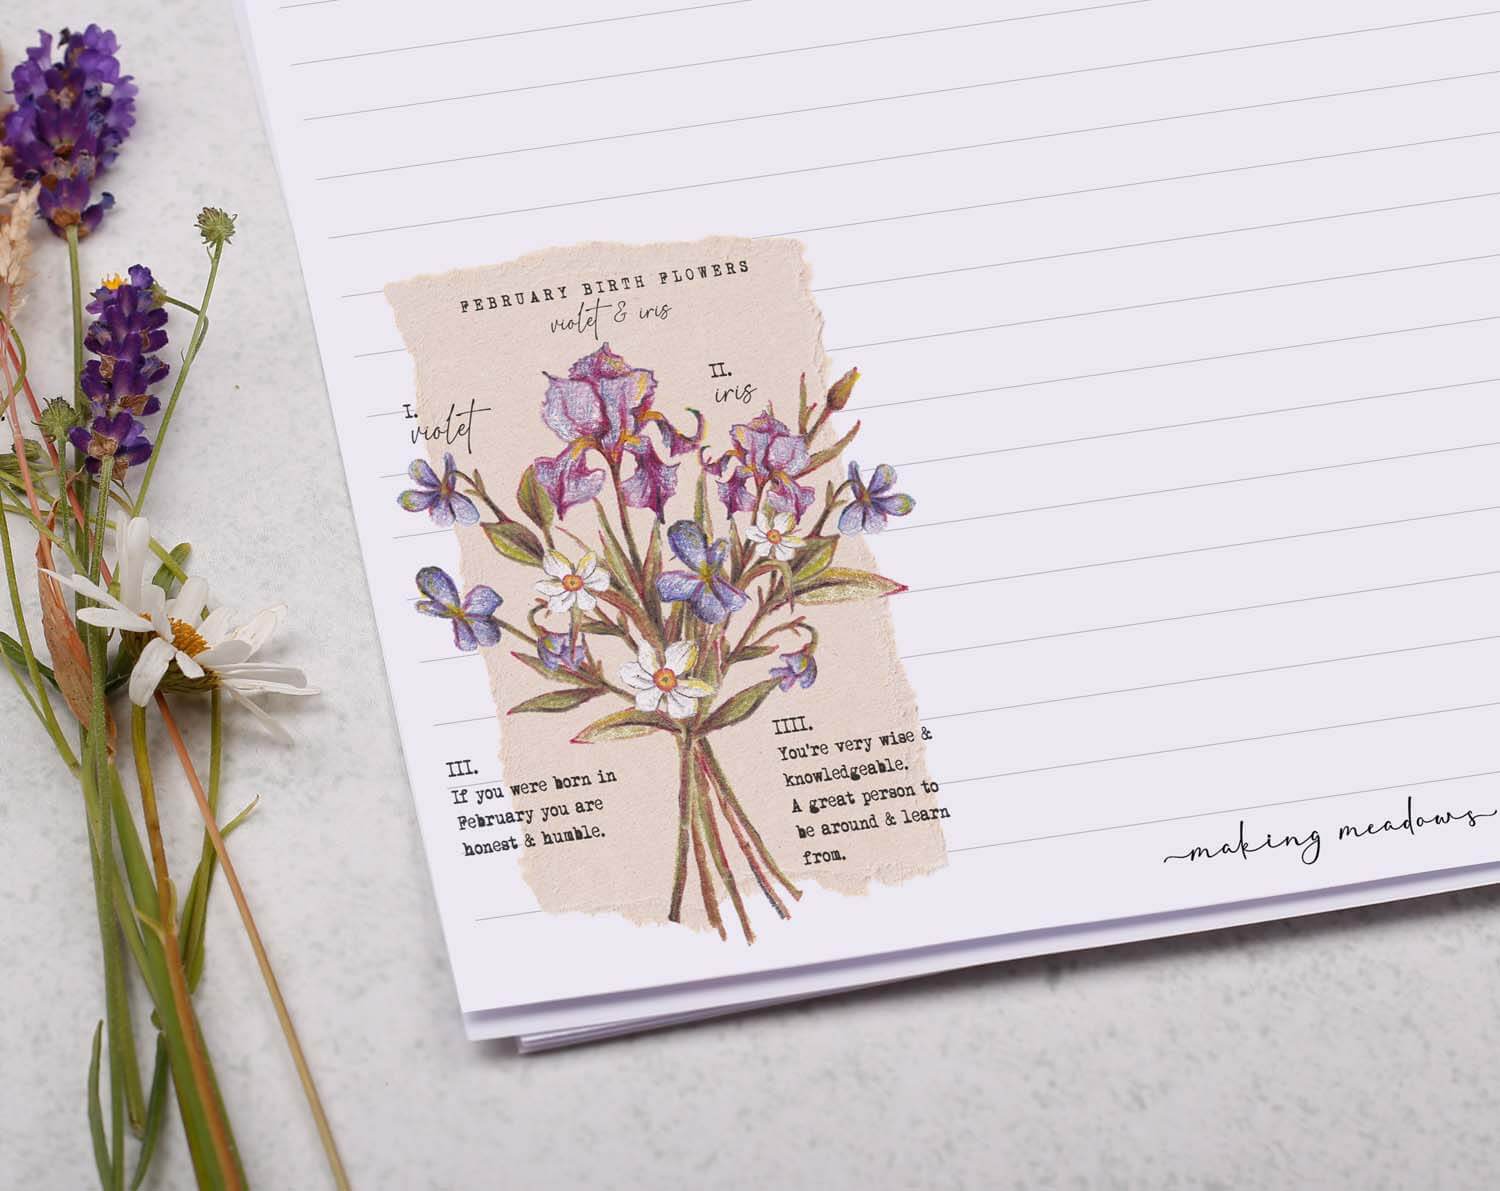 FEBRUARY BIRTH FLOWERS
violet & iris
I.
violet
II.
iris
III.
If you were born in
February you are
honest & humble.
IIII.
You're very wise &
knowledgeable.
A great person to
be around & learn
from.
making meadows